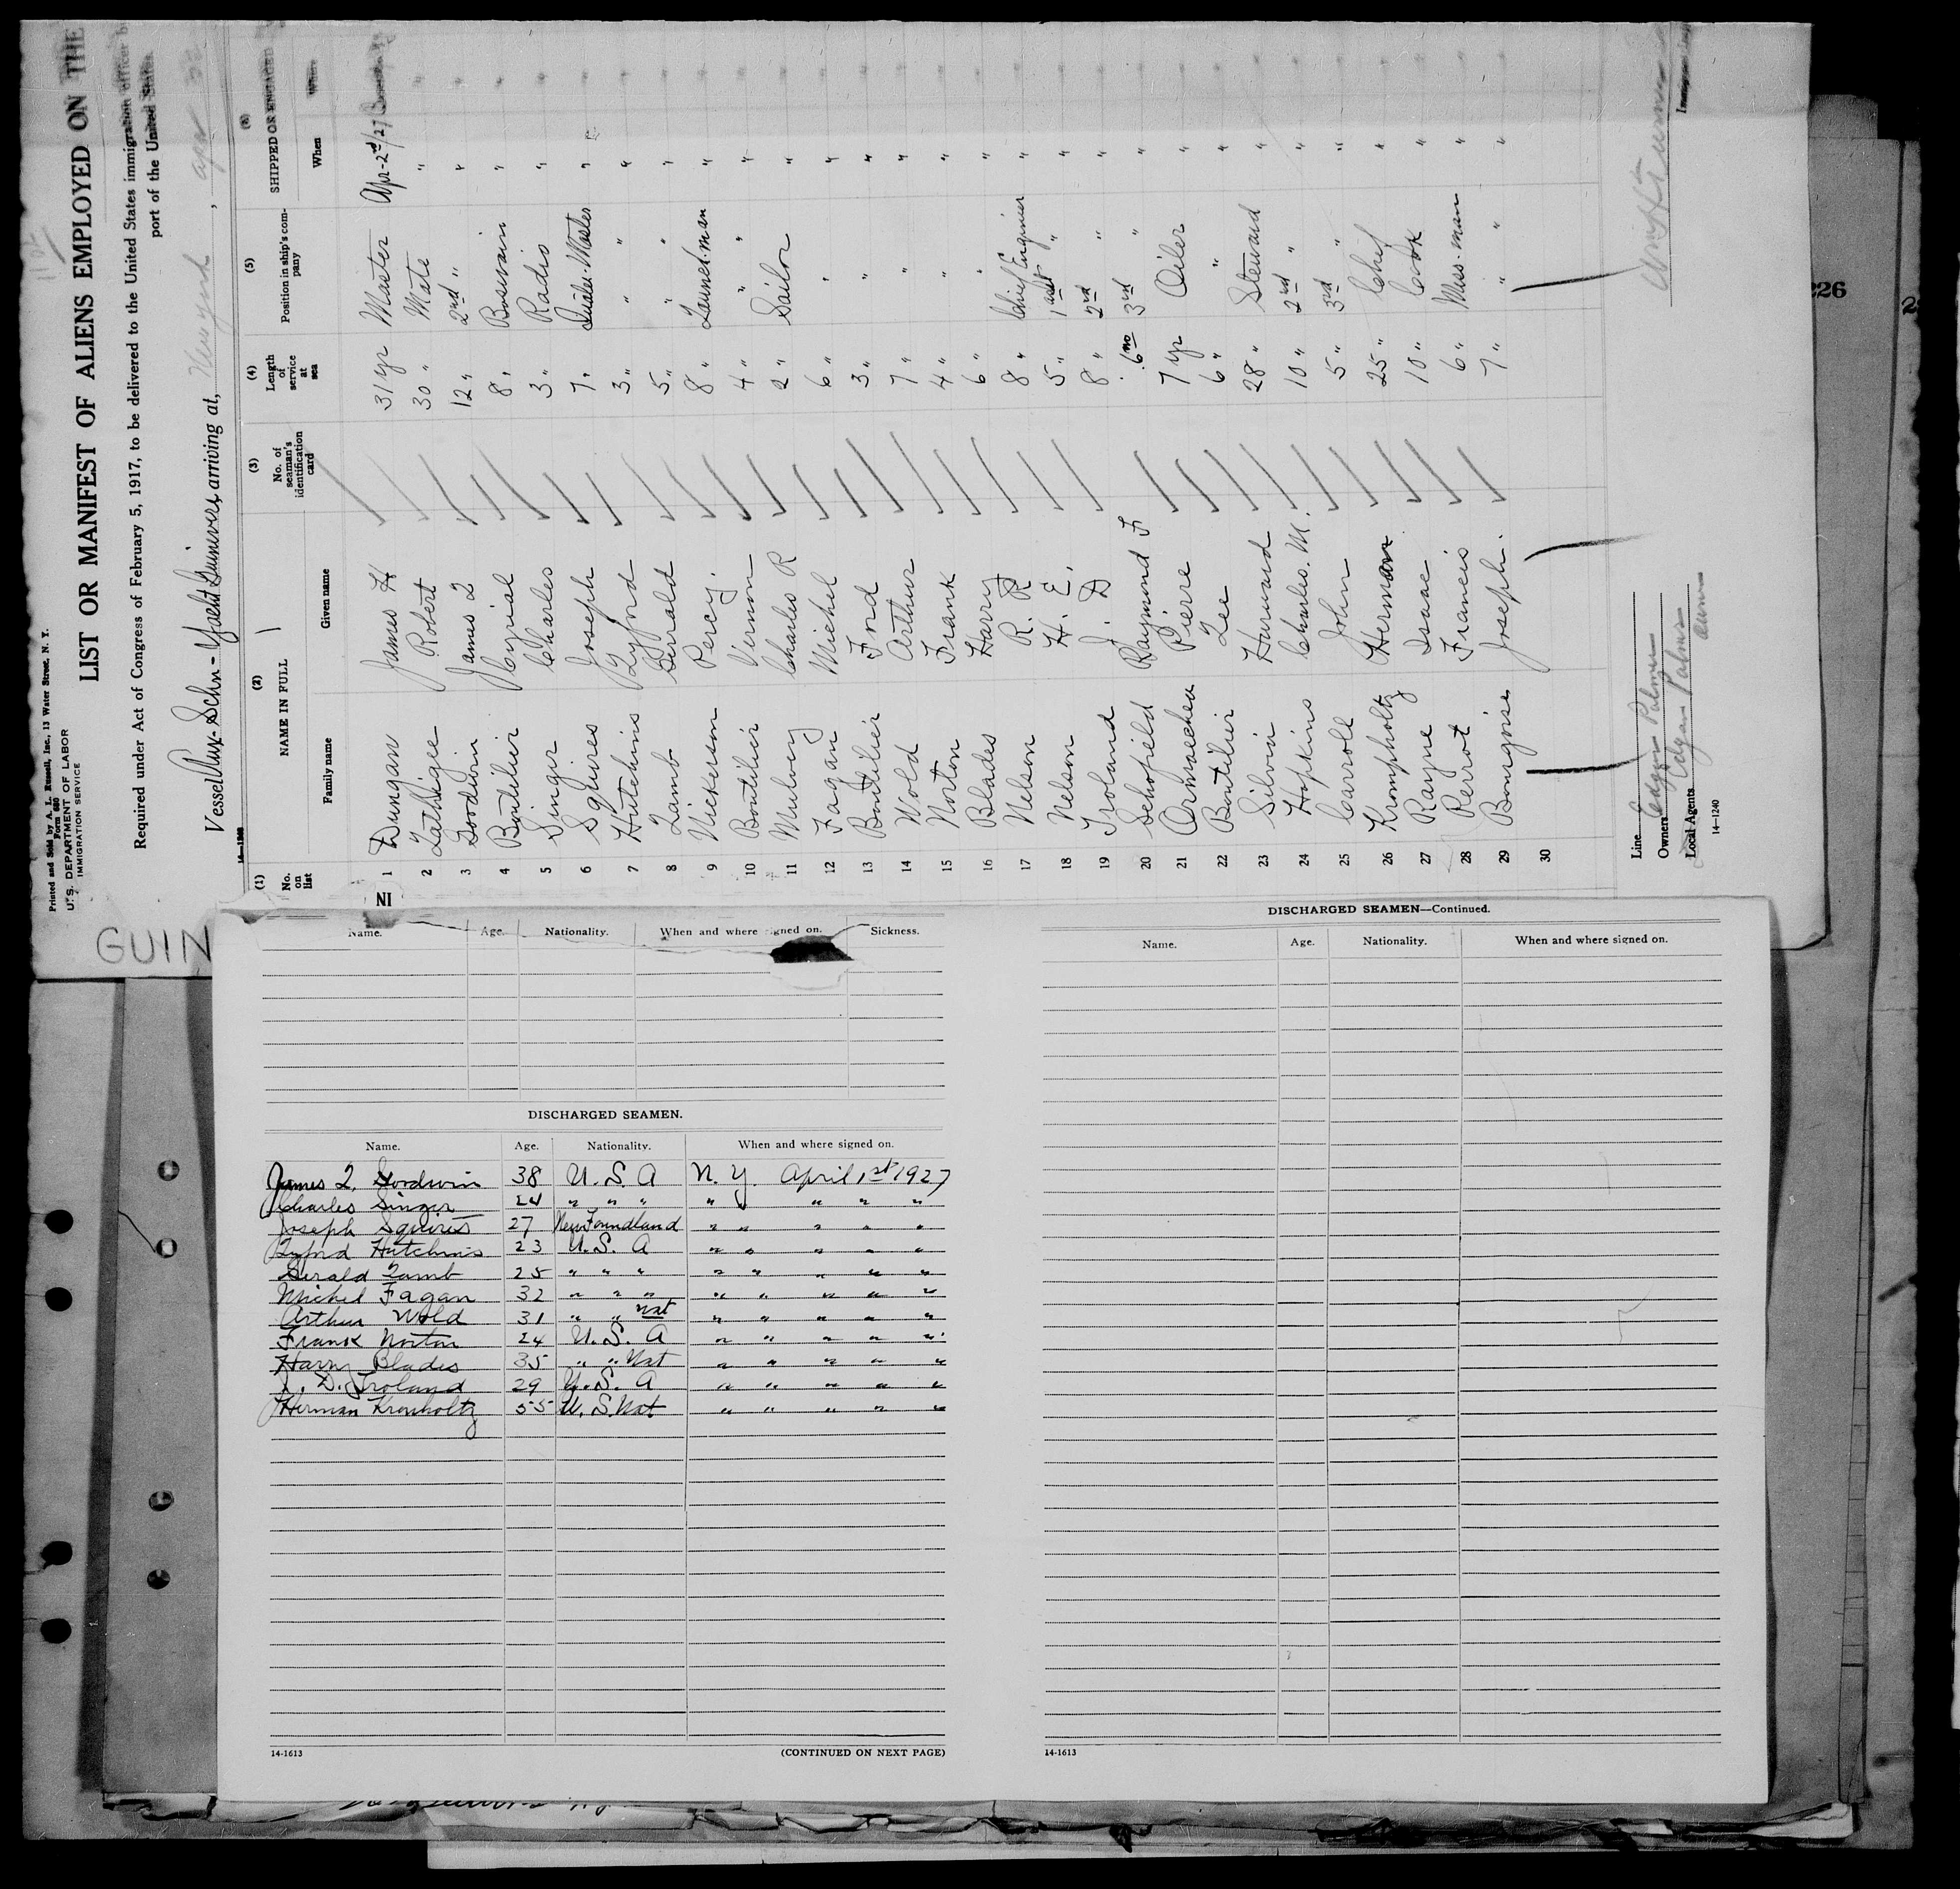 Printed and Sold by A. L. Russell, Inc., 13 Water Street, N. Y.
Form 680
U. S. DEPARTMENT OF LABOR
IMMIGRATION SERVICE
LIST OR MANIFEST OF ALIENS EMPLOYED ON THE
Required under Act of Congress of February 5, 1917, to be delivered to the United States immigration officer b
port of the United States
Vessel Aux-Schn-Yacht Guinevere, arriving at, New York, Apr 22
(1) (2) (3) (4) (5) (6)
No. on list NAME IN FULL No. of seaman's identification card Length of service at sea Position in ship's company SHIPPED OR ENGAGED
Family name Given name When Where
1 Dungan James H 31 yr Master Apr-2nd/27
2 Lathigee Robert 30 " Mate "
3 Goodwin James L 12 " 2nd " "
4 Boutilier Cyrial 8 " Boswain "
5 Singer Charles 3 " Radio "
6 Squires Joseph 7 " Quater-Master "
7 Hutchins Lyford 3 " " "
8 Lamb Gerald 5 " " "
9 Nickerson Percy. 8 " Launch-man "
10 Boutilier Vernon 4 " " "
11 Mulvey Charles R 2 " Sailor "
12 Fagan Michel 6 " " "
13 Boutilier Fred 3 " " "
14 Wold Arthur 7 " " "
15 Norton Frank 4 " " "
16 Blades Harry 6 " " "
17 Nelson R. R 8 " Chief Engineer "
18 Nelson H. E. 5 " 1 asst " "
19 Troland J. D 8 " 2nd " "
20 Schofield Raymond F 6 mo 3rd " "
21 Pierre 7 yr Oiler "
22 Boutilier Lee 6 " " "
23 Silvin Harward 28 " Steward "
24 Hopkins Charles. M. 10 " 2nd " "
25 Carroll John 5 " 3rd " "
26 Krompholtz Herman 25 " Chief "
27 Rayne Isaac 10 " Cook "
28 Perrot Francis 6 " Mess-man "
29 Bourgois Joseph. 7 " " "
30
Line
Owners Edgar Palmer
Local Agents Edgar Palmer
Owner
14-1240
IN
GUIN
226
2
Name. Age. Nationality. When and where signed on. Sickness.
DISCHARGED SEAMEN.
Name. Age. Nationality. When and where signed on.
James L. Goodwin 38 U. S. A N. Y. April 1st 1927
Charles Singer 24 " " " " " " "
Joseph Squires 27 NewFoundland " " " " "
Lyford Hutchins 23 U. S. A " " " " "
Gerald Lamb 25 " " " " " " " "
Michel Fagan 32 " " " " " " " "
Arthur Wold 31 " " Nat " " " " "
Frank Norton 24 U. S. A " " " " "
Harry Blades 35 " " Nat " " " " "
J. D. Troland 29 U. S. A " " " " "
Herman Kromholtz 55 U. S. Nat " " " " "
14-1613 (CONTINUED ON NEXT PAGE)
DISCHARGED SEAMEN—Continued.
Name. Age. Nationality. When and where signed on.
14-1613